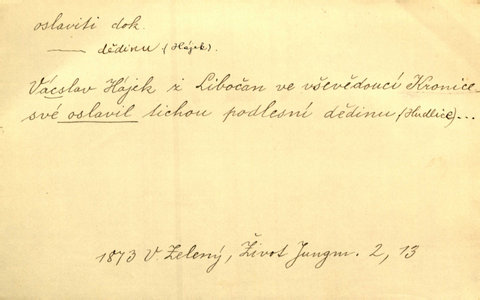 oslaviti dok.
—— dědinu (Hájek).
Vácslav Hájek z Libočan ve vševědoucí Kronice
své oslavil tichou podlesní dědinu (Hudlice)...
1873 V. Zelený, Život Jungm. 2, 13